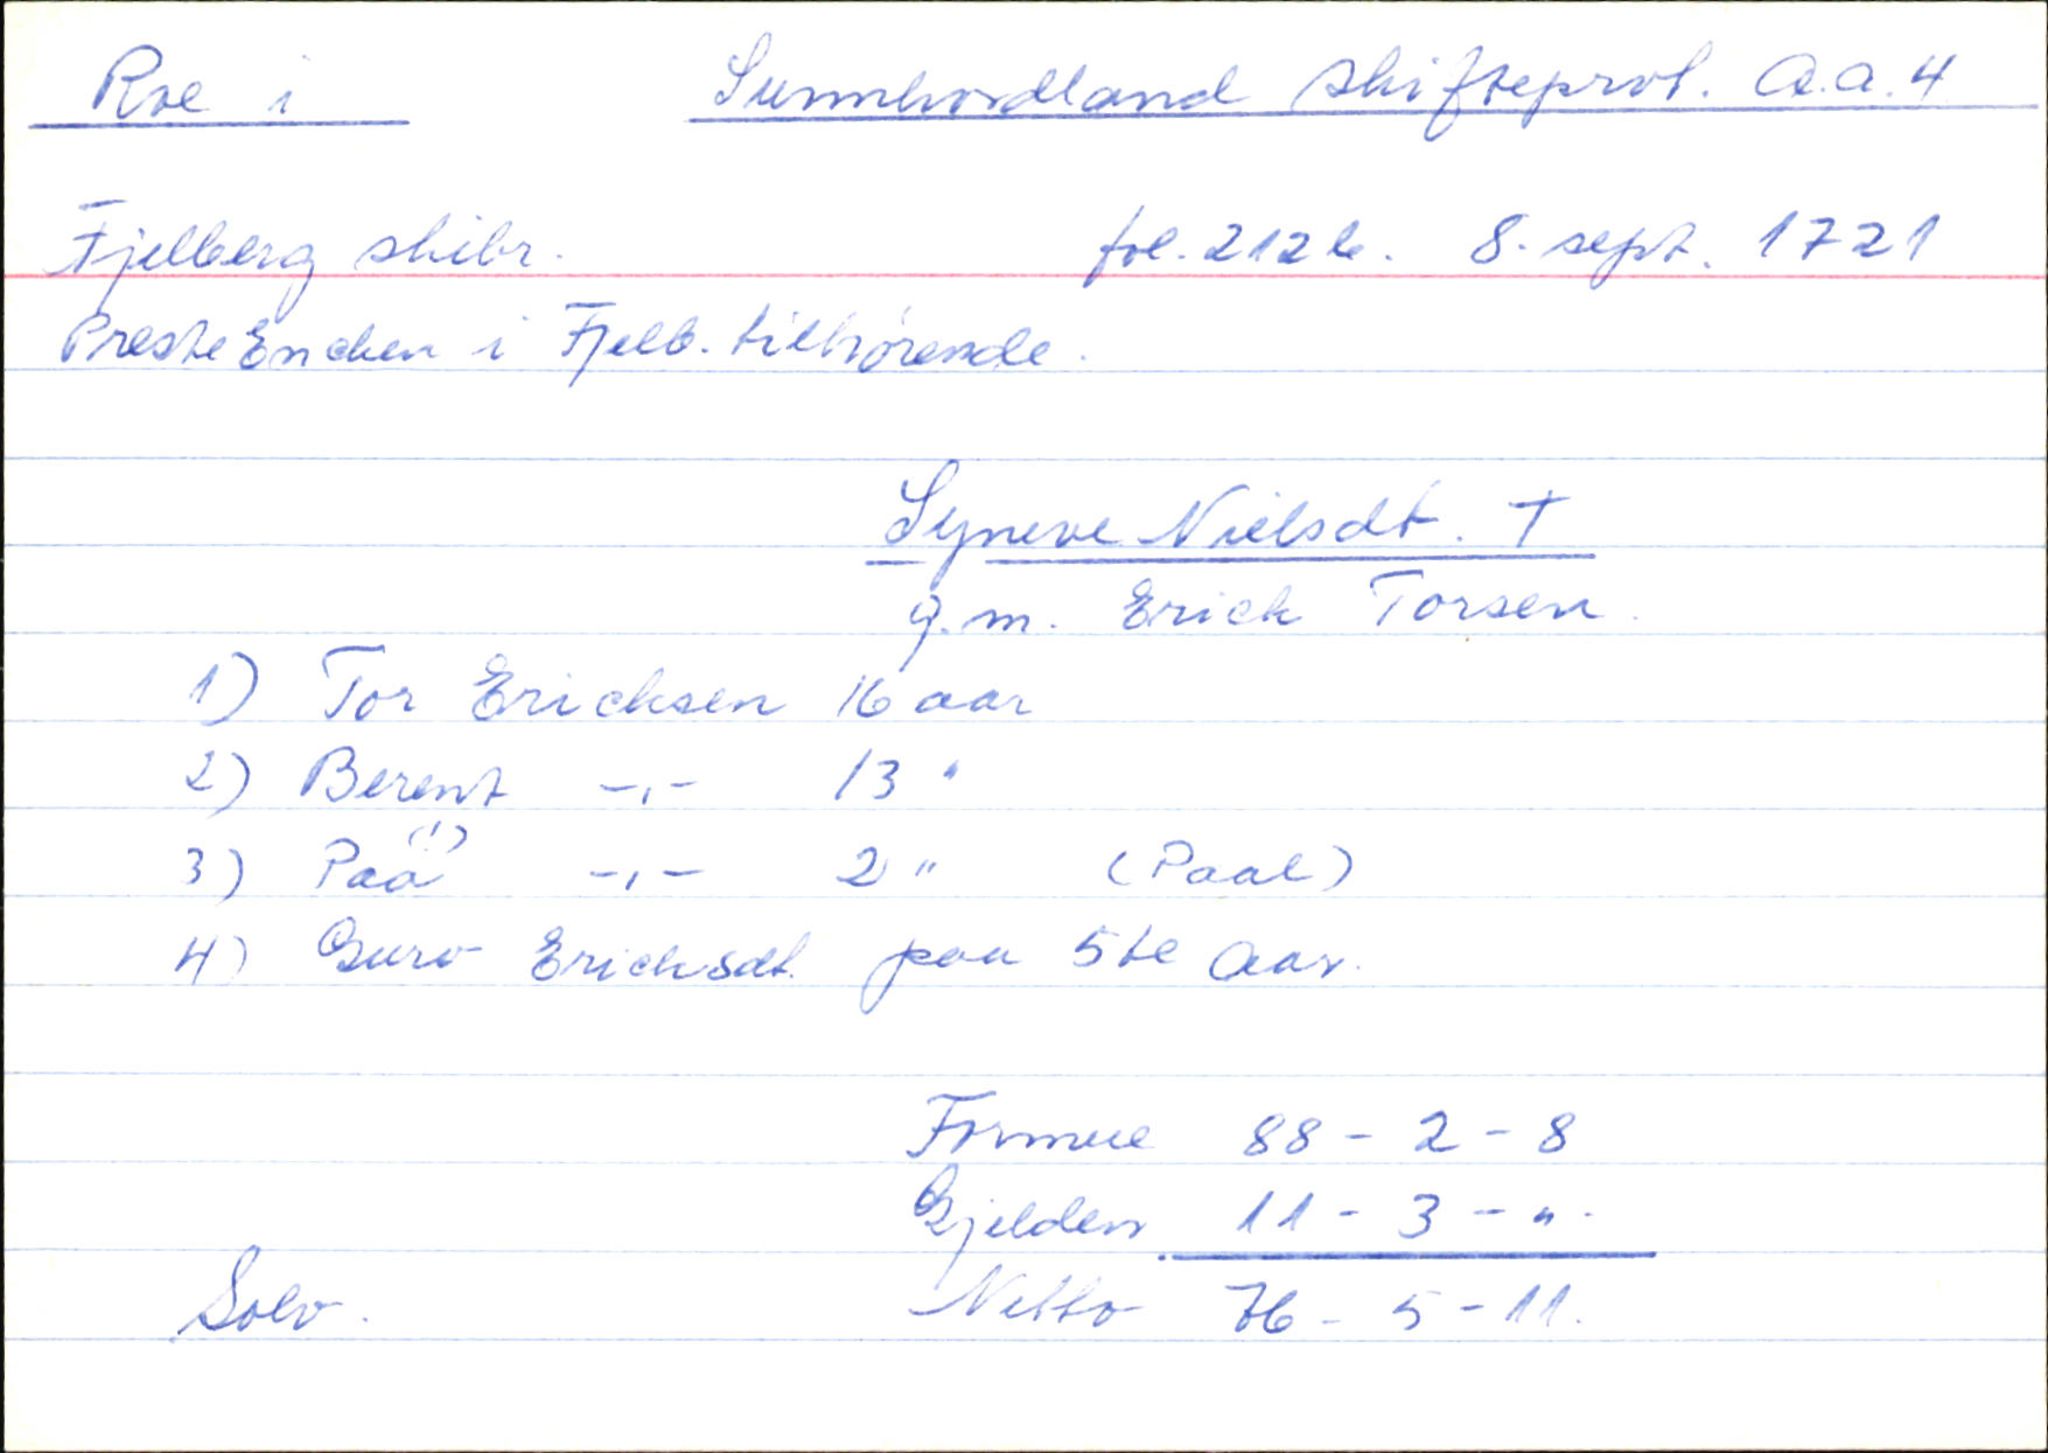 Roe i Sunnhordland skifteprot. A.a.4
Fjelberg skibr. fol. 212 b. 8. sept. 1721
Preste Encken i Fjelb. tilhørende.
Syneve Nielsdt. †
g.m. Erick Torsen.
1) Tor Ericksen 16 aar
2) Berent -,- 13 "
3) Paa (!) -,- 2 " (Paal)
4) Guro Ericksdt. paa 5te Aar.
Formue 88 - 2 - 8
Gjelden 11 - 3 - " -
Solv. Netto 76 - 5 - 11.